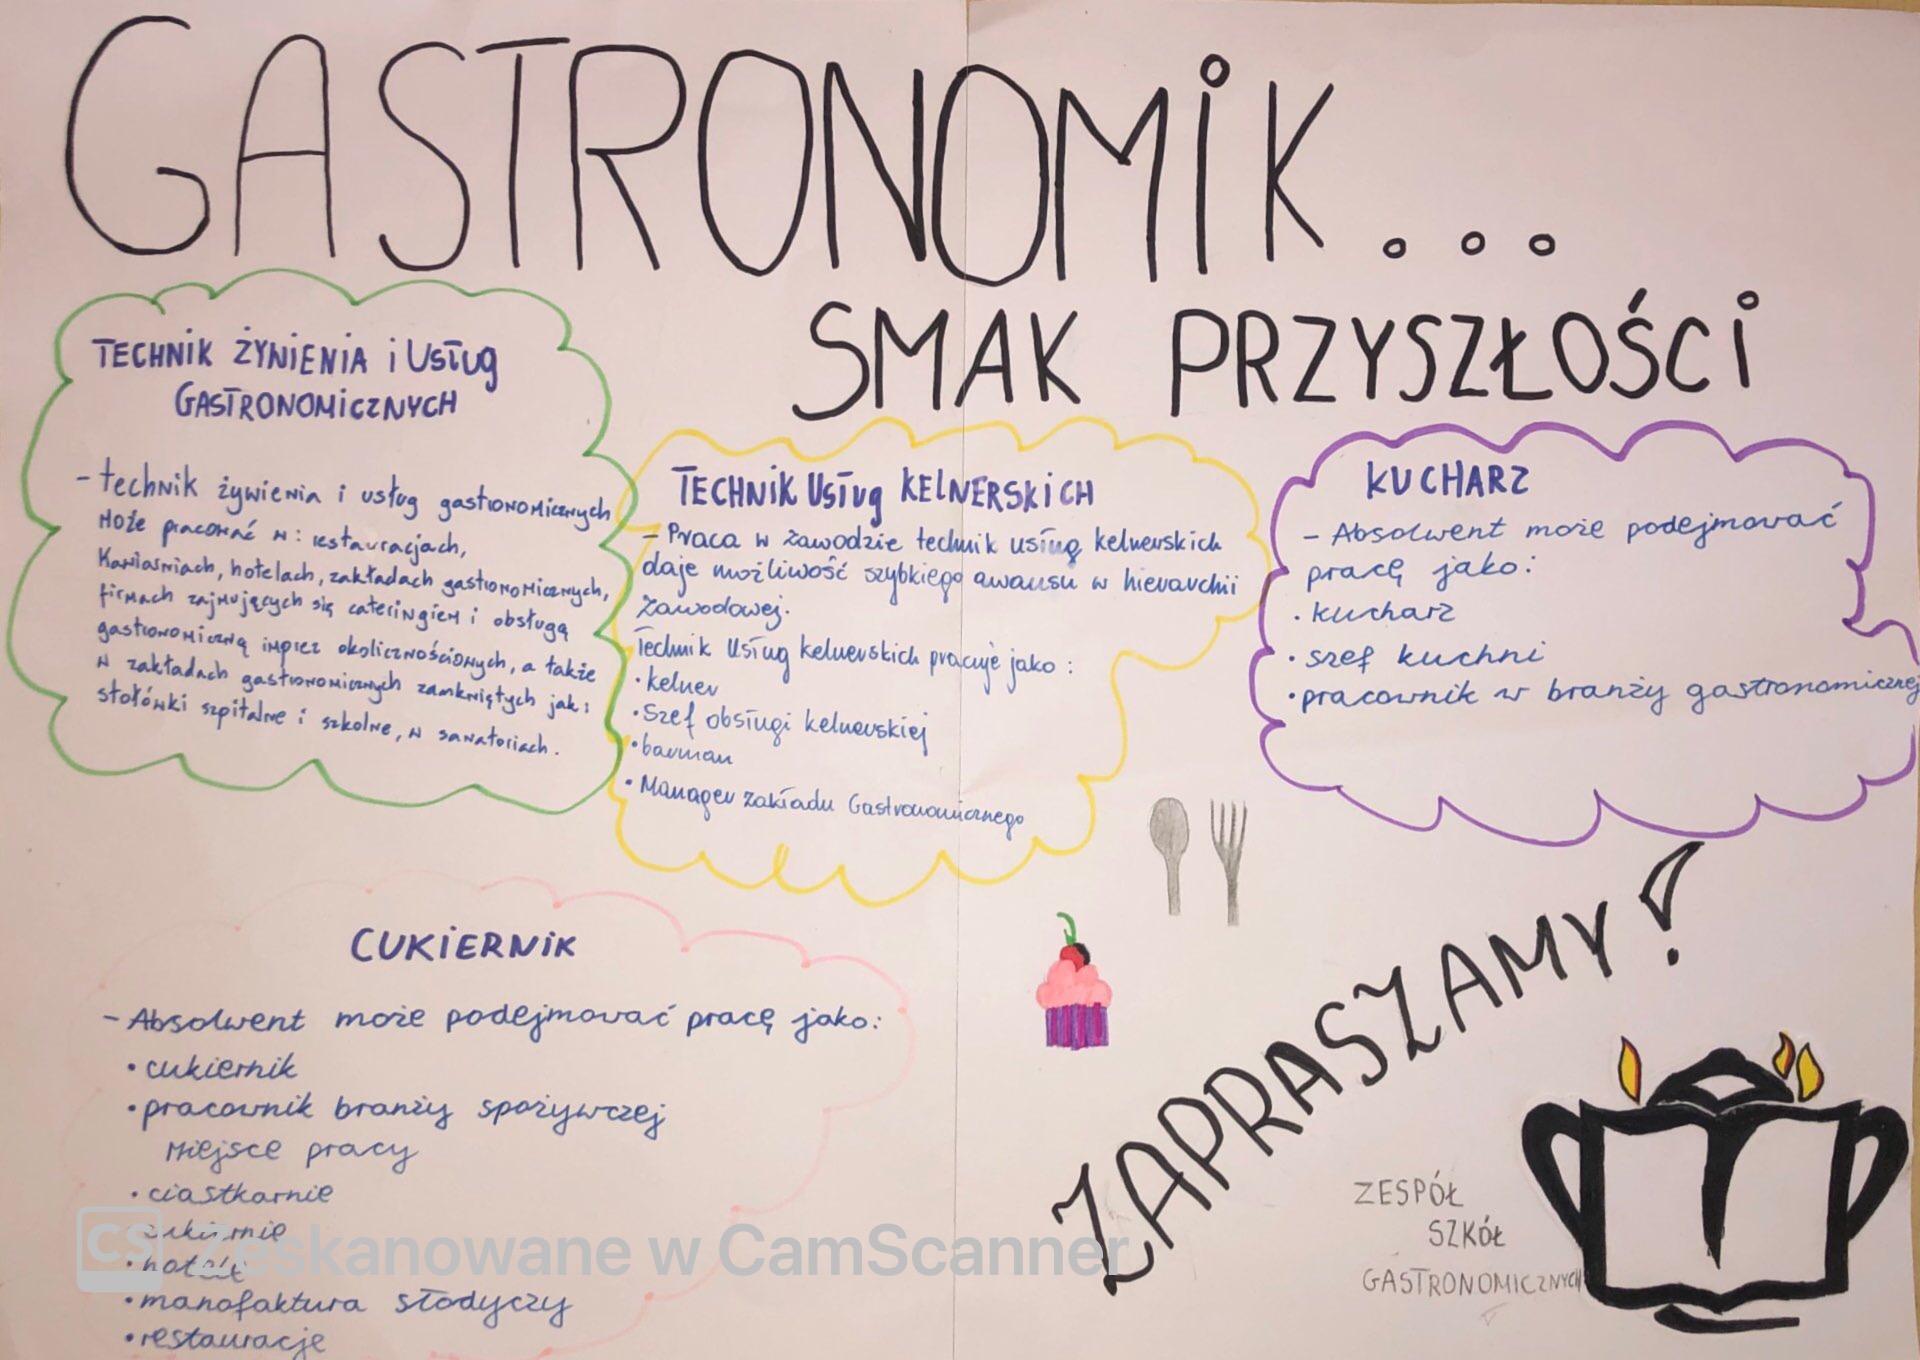 GASTRONOMiK...
SMAK PRZYSZŁOŚCi
TECHNiK ŻYNiENiA i Usług
GASTRONOMicZNYCH
- technik żywienia i usług gastronomicznych
Może pracować w: restauracjach,
Kawiarniach, hotelach, zakładach gastronomicznych,
firmach zajmujących się cateringiem i obsługą
gastronomiczną imprez okolicznościowych, a także
w zakładach gastronomicznych zamkniętych jak:
stołówki szpitalne i szkolne, w sanatoriach.
TECHNiK Usług KELNERSKiCH
- Praca w zawodzie technik usług kelnerskich
daje możliwość szybkiego awansu w hierarchii
zawodowej.
Technik Usług kelnerskich pracuje jako:
• kelner
• Szef obsługi kelnerskiej
• barman
• Manager zakładu Gastronomicznego
KUCHARZ
- Absolwent może podejmować
pracę jako:
• kucharz
• szef kuchni
• pracownik w branży gastronomicznej
CUKIERNiK
- Absolwent może podejmować pracę jako:
• cukiernik
• pracownik branży spożywczej
Miejsce pracy
• ciastkarnie
cukiernie
• hotele
• manofaktura słodyczy
• restauracje
ZAPRASZAMY!
ZESPÓŁ
SZKÓŁ
GASTRONOMICZNYCH
CS Zeskanowane w CamScanner